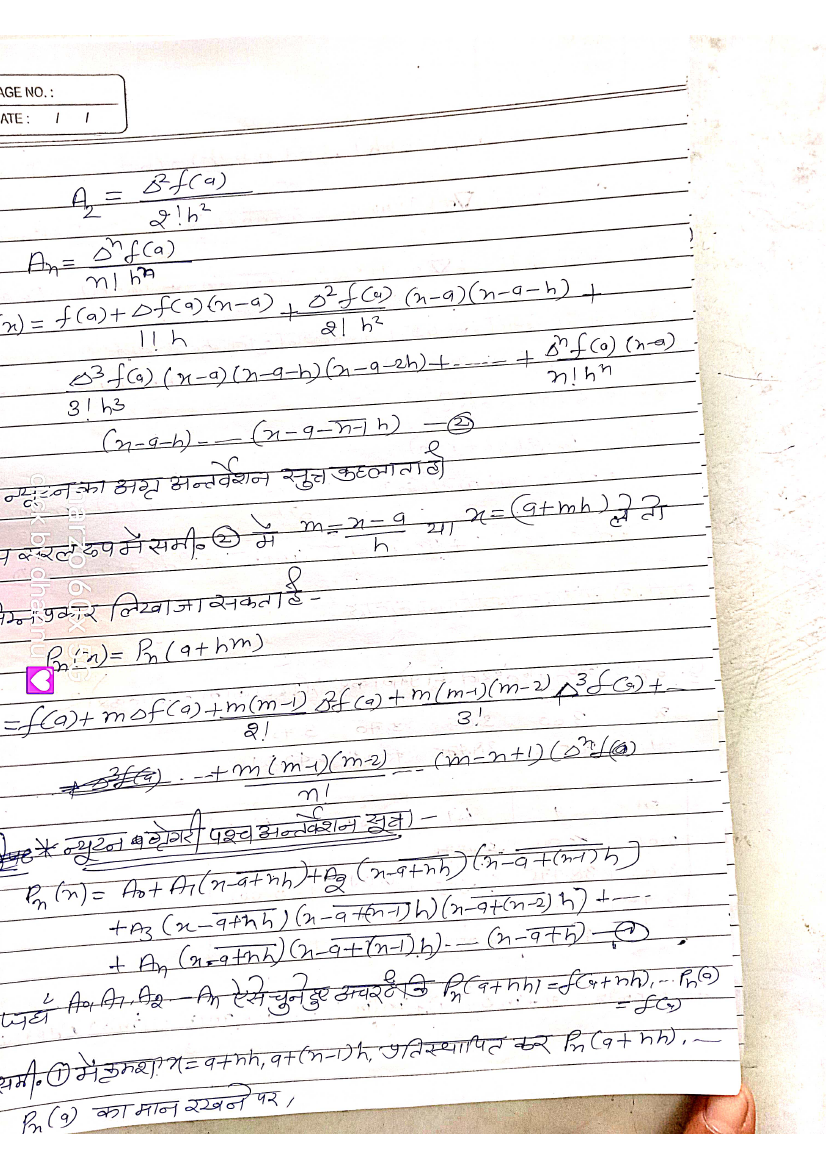 AGE NO.:
ATE: / /
A₂ = Δ²f(a) / 2!h²
Aₙ = Δⁿf(a) / n! hⁿ
x) = f(a) + Δf(a)(x-a) / 1! h + Δ²f(a) / 2! h² (x-a)(x-a-h) +
Δ³f(a) / 3! h³ (x-a)(x-a-h)(x-a-2h) + ----- + Δⁿf(a)(x-a) / n!hⁿ
(x-a-h) - — (x-a-n̅-̅1̅ h) — ②
न्यूटन का अग्र अन्तर्वेशन सूत्र कहलाता है।
सरल रूप में समी० ② में m = x-a / h या x = (a+mh) ले तो
प्रकार लिखा जा सकता है -
Pₙ(x) = Pₙ(a+hm)
= f(a) + mΔf(a) + m(m-1) / 2! Δ²f(a) + m(m-1)(m-2) / 3! Δ³f(a) + --
... + m(m-1)(m-2) / n! --- (m-n+1)(Δⁿf(a)
* न्यूटन ग्रेगरी पश्च अन्तर्वेशन सूत्र) -
Pₙ(x) = A₀ + A₁(x-a̅+̅n̅h̅) + A₂(x-a̅+̅n̅h̅)(x-a̅+̅(̅n̅-̅1̅)̅h̅)
+ A₃(x-a̅+̅n̅h̅)(x-a̅+̅(̅n̅-̅1̅)̅h)(x-a̅+̅(̅n̅-̅2̅)̅h) + ----
+ Aₙ(x-a̅+̅n̅h̅)(x-a̅+̅(̅n̅-̅1̅)̅h) --- (x-a̅+̅h̅) — ①
जहाँ A₀, A₁, A₂ --- Aₙ ऐसे चुने हुए अचर है कि Pₙ(a+nh) = f(a+nh), ... Pₙ(a)
= f(a)
समी० ① में क्रमशः x = a+nh, a+(n-1)h, प्रतिस्थापित कर Pₙ(a+nh), --
Pₙ(a) का मान रखने पर,